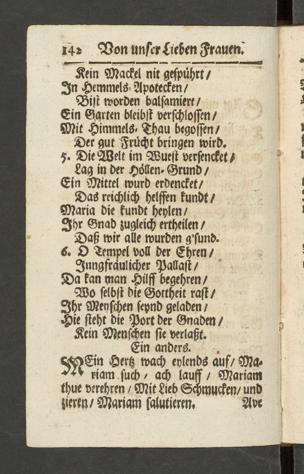 142 Von unser Lieben Frauen.
Kein Mackel nit gespührt /
In Hemmels-Apotecken /
Bist worden balsamiert /
Ein Garten bleibst verschlossen /
Mit Himmels-Thau begossen /
Der gut Frücht bringen wird.
5. Die Welt im Wuest versencket /
Lag in der Höllen-Grund /
Ein Mittel wurd erdencket /
Das reichlich helffen kundt /
Maria die kundt heylen /
Ihr Gnad zugleich ertheilen /
Daß wir alle wurden g'sund.
6. O Tempel voll der Ehren /
Jungfräulicher Pallast /
Da kan man Hilff begehren /
Wo selbst die Gottheit rast /
Ihr Menschen seynd geladen /
Hie steht die Port der Gnaden /
Kein Menschen sie verlaßt.
Ein anders.
MEin Hertz wach eylends auf / Ma-
riam such / ach lauff / Mariam
thue verehren / Mit Lieb Schmucken / und
zieren / Mariam salutieren. Ave